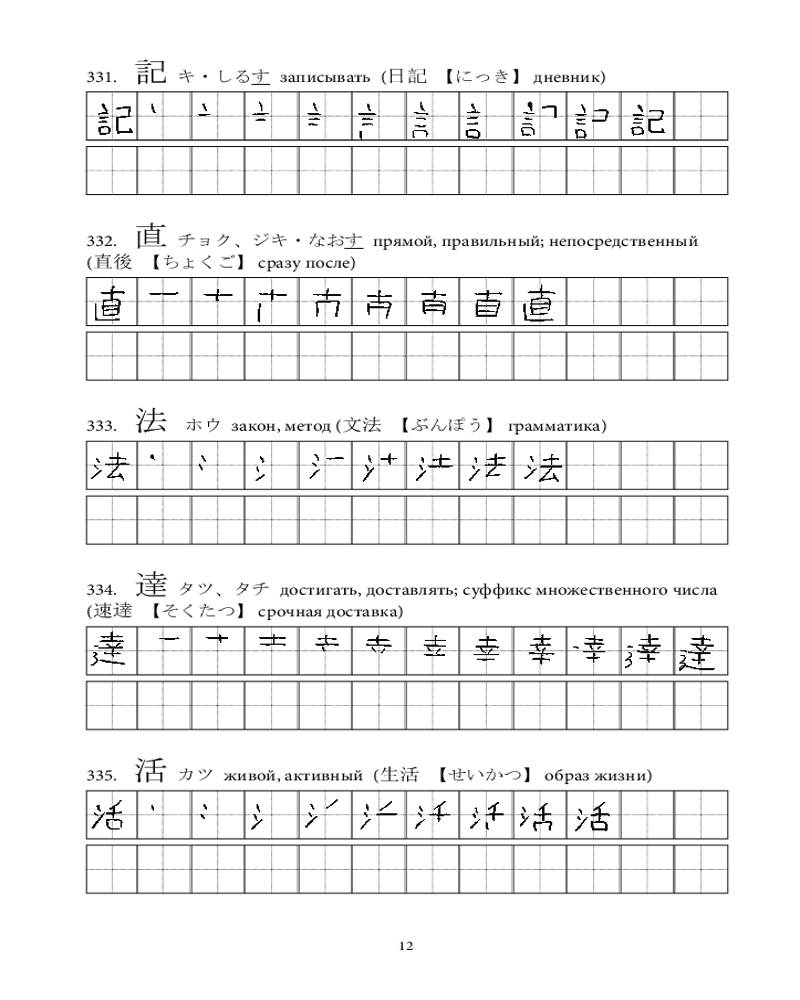 331. 記 キ・しるす записывать (日記 【にっき】 дневник)
332. 直 チョク、ジキ・なおす прямой, правильный; непосредственный
(直後 【ちょくご】 сразу после)
333. 法 ホウ закон, метод (文法 【ぶんぽう】 грамматика)
334. 達 タツ、タチ достигать, доставлять; суффикс множественного числа
(速達 【そくたつ】 срочная доставка)
335. 活 カツ живой, активный (生活 【せいかつ】 образ жизни)
12